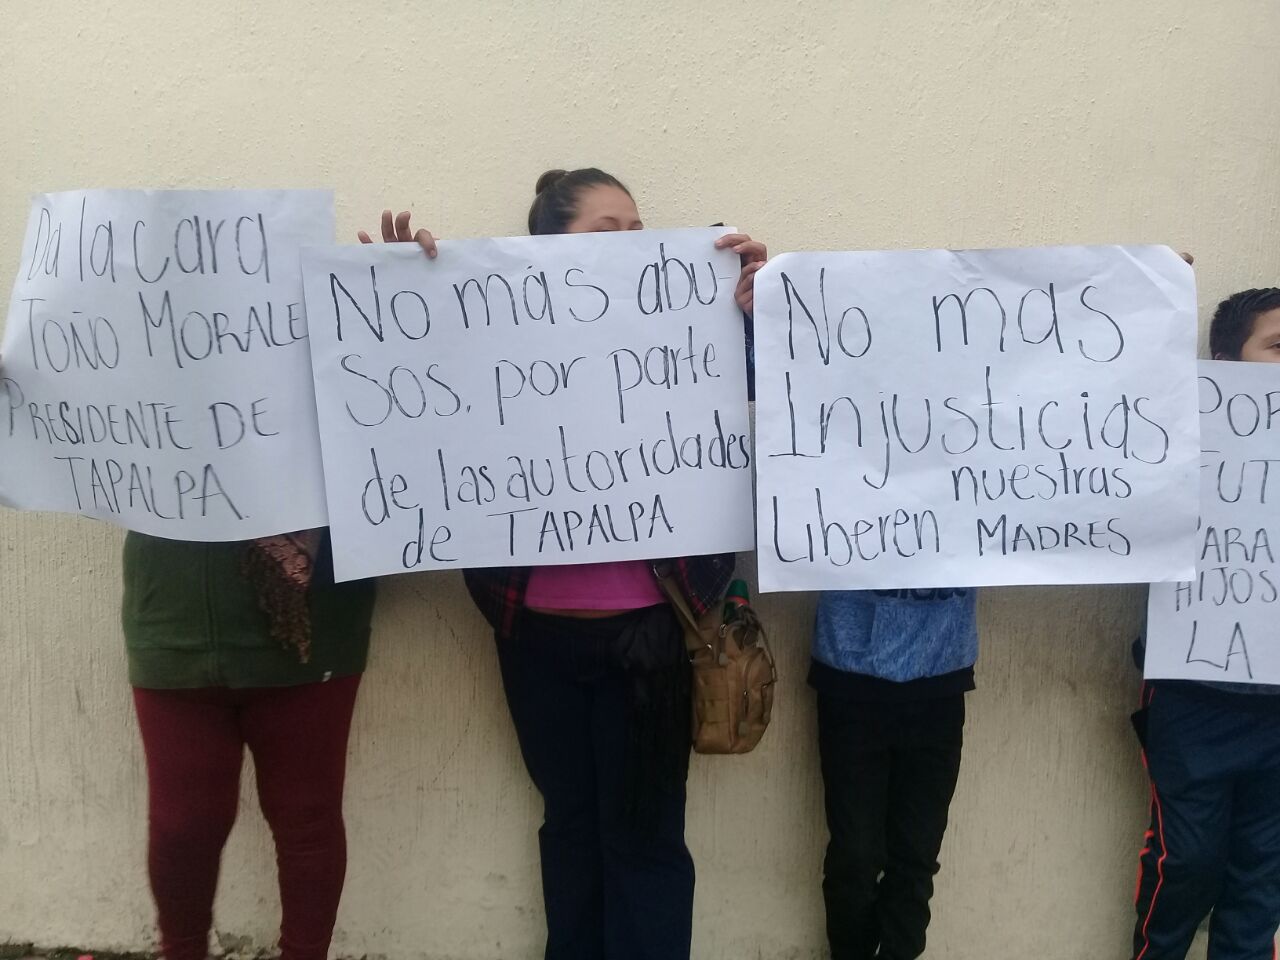 Da la cara
TOÑO MORALE
PRESIDENTE DE
TAPALPA.
No más abu-
sos. por parte
de las autoridades
de TAPALPA
No mas
Injusticias
nuestras
Liberen MADRES
POR
FUT
PARA
HIJOS
LA